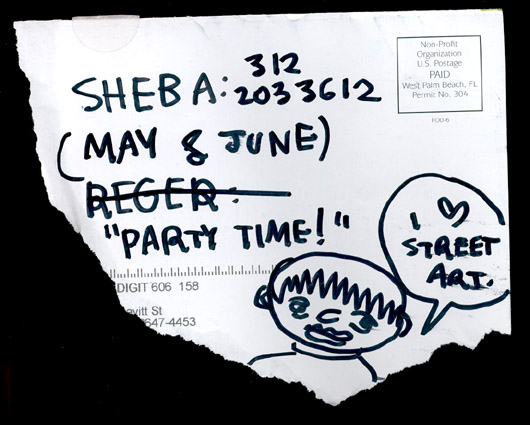 312
SHEBA: 2033612
(MAY & JUNE)
REGER:
"PARTY TIME!"
Non-Profit
Organization
U.S. Postage
PAID
West Palm Beach, FL
Permit No. 304
I ♡
STREET
ART.
DIGIT 606 158
avitt St
647-4453